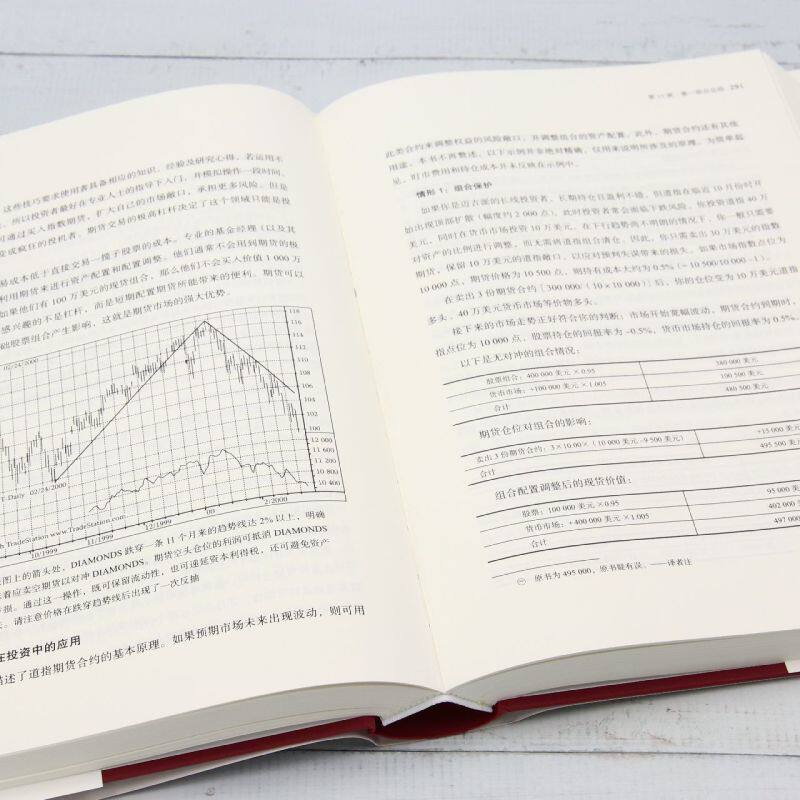 这些技巧要求使用者具备相应的知识、经验及研究心得，若运用不
，所以投资者最好在专业人士的指导下入门，并模拟操作一段时间，
可通过买入指数期货，扩大自己的市场敞口，承担更多风险。但是
变成疯狂的投机者。期货交易的极高杠杆决定了这个领域只能是投
易成本低于直接交易一揽子股票的成本。专业的基金经理（以及其
利用期货来进行资产配置和配置调整。他们通常不会用到期货的极
如果他们有 100 万美元的现货组合，那么他们不会买入价值 1 000 万
感兴趣的不是杠杆，而是短期配置期货所能带来的便利。期货可以
础股票组合产生影响，这就是期货市场的强大优势。
02/24/2000
118
116
114
112
110
108
106
104
102
100
12 000
11 600
11 200
10 800
10 400
T Daily 02/24/2000
h TradeStation www.TradeStation.com
10/1999
11/1999
12/1999
00
2/2000
图上的箭头处，DIAMONDS 跌穿一条 11 个月来的趋势线达 2% 以上，明确
着应卖空期货以对冲 DIAMONDS。期货空头仓位的利润可抵消 DIAMONDS
亏损。通过这一操作，既可保留流动性，也可递延资本利得税，还可避免资产
。请注意价格在跌穿趋势线后出现了一次反抽
在投资中的应用
描述了道指期货合约的基本原理。如果预期市场未来出现波动，则可用
291
此类合约来调整权益的风险敞口，并调整组合的资产配置。此外，期货合约还有其他
用途，本书不再整述。以下示例并非绝对精确，仅用来说明所涉及的原理。为简单起
见，盯市费用和持仓成本并未反映在示例中。
情形 1：组合保护
如果你是迈吉派的长线投资者，长期持仓且盈利不错，但道指在临近 10 月份时开
如出现顶部扩散（幅度约 2 000 点），此时投资者常会面临下跌风险。你投资道指 40 万
美元，同时在货币市场投资 10 万美元。在下行趋势尚不明朗的情况下，你一般只需要
对资产的比例进行调整，而无需将道指组合清仓。因此，你只需卖出 30 万美元的指数
期货，保留 10 万美元的道指敞口，以应对预判失误带来的损失。如果市场指数点位为
10 000 点，期货价格为 10 500 点，则持有成本大约为 0.5%（= 10 500/10 000 −1）。
在卖出 3 份期货合约［300 000/（10 × 10 000）］后，你的仓位变为 10 万美元道指
多头、40 万美元货币市场等价物多头。
接下来的市场走势正好符合你的判断：市场开始宽幅波动，期货合约到期时，
指点位为 10 000 点，股票持仓的回报率为 −0.5%，货币市场持仓的回报率为 0.5%。
以下是无对冲的组合情况：
股票组合：400 000 美元 × 0.95 380 000 美元
货币市场：+100 000 美元 × 1.005 100 500 美元
合计 480 500 美元
期货仓位对组合的影响：
卖出 3 份期货合约：3×10.00×（10 000 美元−9 500 美元） +15 000 美元
合计 495 500 美元
组合配置调整后的现货价值：
股票：100 000 美元 × 0.95 95 000 美元
货币市场：+400 000 美元 × 1.005 402 000 美元
合计 497 000 美元
㊀ 原书为 495 000，原书疑有误。——译者注